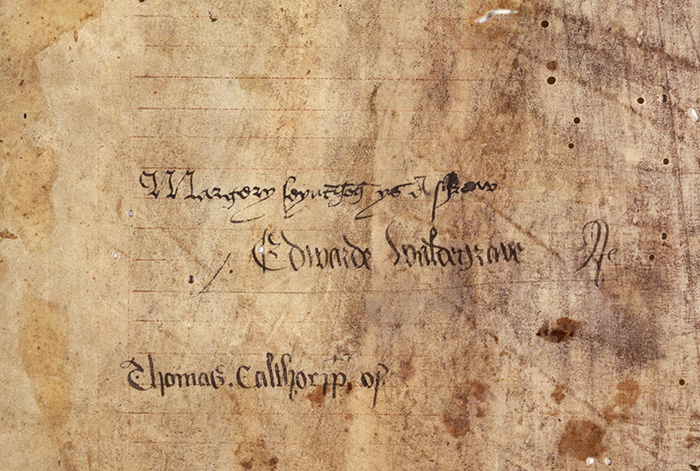 Margery seyntjhon ys A shrew
Edwarde Waldegrave
Thomas. Calthorpp. of